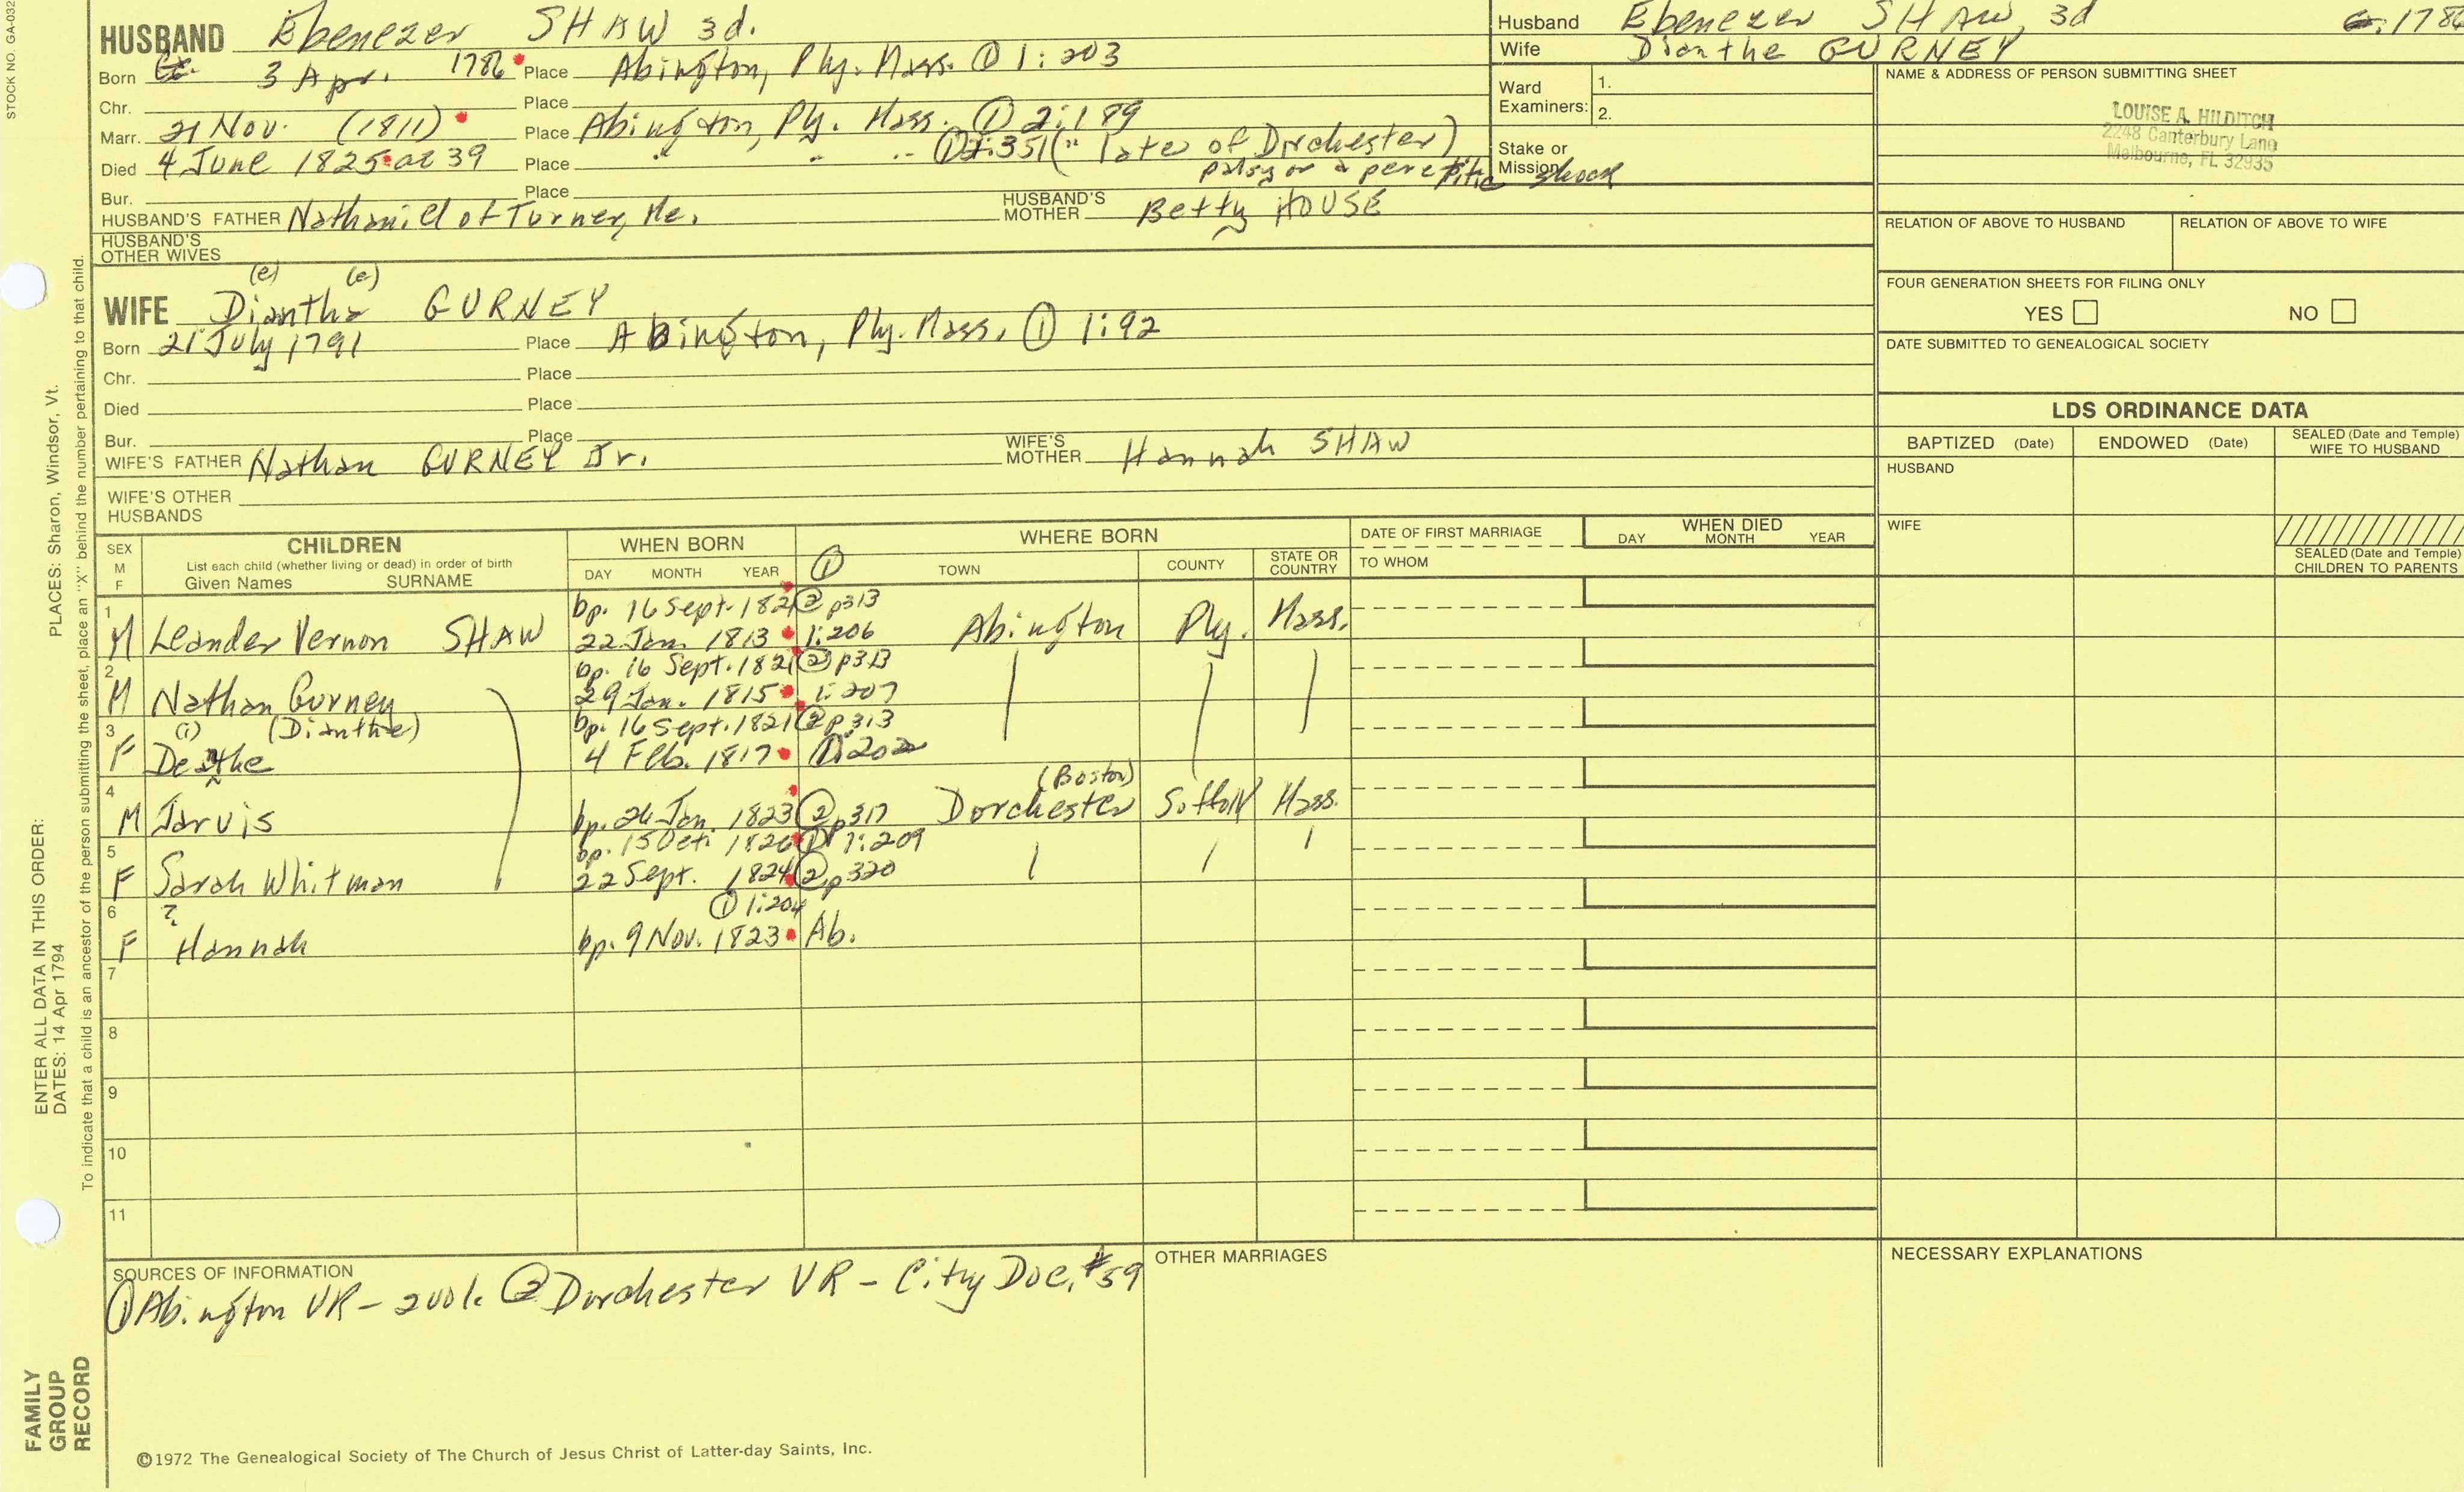 STOCK NO. GA-032
HUSBAND Ebenezer SHAW 3d.
Born 3 Apr. 1786 Place Abington, Ply. Mass. ① 1:203
Chr. Place
Marr. 21 Nov. (1811) Place Abington, Ply. Mass. ① 2:189
Died 4 June 1825 at 39 Place " " " ① 2:351 ("late of Dorchester)
palsy or a shock
Bur. Place
HUSBAND'S FATHER Nathaniel of Turner, Me. HUSBAND'S MOTHER Betty HOUSE
HUSBAND'S OTHER WIVES
(e) (e)
WIFE Diantha GURNEY
Born 21 July 1791 Place Abington, Ply. Mass. ① 1:92
Chr. Place
Died Place
Bur. Place
WIFE'S FATHER Nathan GURNEY Jr. WIFE'S MOTHER Hannah SHAW
WIFE'S OTHER HUSBANDS
Husband Ebenezer SHAW, 3d 1786
Wife Dianthe GURNEY
Ward Examiners: 1.
2.
Stake or Mission
NAME & ADDRESS OF PERSON SUBMITTING SHEET
LOUISE A. HILDITCH
2248 Canterbury Lane
Melbourne, FL 32935
RELATION OF ABOVE TO HUSBAND RELATION OF ABOVE TO WIFE
FOUR GENERATION SHEETS FOR FILING ONLY
YES NO
DATE SUBMITTED TO GENEALOGICAL SOCIETY
LDS ORDINANCE DATA
BAPTIZED (Date) ENDOWED (Date) SEALED (Date and Temple) WIFE TO HUSBAND
HUSBAND
WIFE
SEALED (Date and Temple) CHILDREN TO PARENTS
SEX M F
CHILDREN
List each child (whether living or dead) in order of birth
Given Names SURNAME
WHEN BORN
DAY MONTH YEAR
①
WHERE BORN
TOWN COUNTY STATE OR COUNTRY
DATE OF FIRST MARRIAGE
TO WHOM
WHEN DIED
DAY MONTH YEAR
1 bp. 16 Sept. 182 ② p313
M Leander Vernon SHAW 22 Jan. 1813 1:206 Abington Ply. Mass.
2 bp. 16 Sept. 1821 ② p313
M Nathan Gurney 29 Jan. 1815 1:207
3 (i) (Dianthe) bp. 16 Sept. 1821 ② p313
F Deathe 4 Feb. 1817 ① 1:202
4 (Boston)
M Jarvis bp. 26 Jan. 1823 ② p317 Dorchester Suffolk Mass.
5 bp. 15 Oct. 1826 ① 1:209
F Sarah Whitman 22 Sept. 1824 ② p320
6 ? ① 1:204
F Hannah bp. 9 Nov. 1823 Ab.
7
8
9
10
11
SOURCES OF INFORMATION
① Abington VR - 2 vol. ② Dorchester VR - City Doc. #59
OTHER MARRIAGES
NECESSARY EXPLANATIONS
©1972 The Genealogical Society of The Church of Jesus Christ of Latter-day Saints, Inc.
FAMILY
GROUP
RECORD
ENTER ALL DATA IN THIS ORDER:
DATES: 14 Apr 1794
PLACES: Sharon, Windsor, Vt.
To indicate that a child is an ancestor of the person submitting the sheet, place an "X" behind the number pertaining to that child.